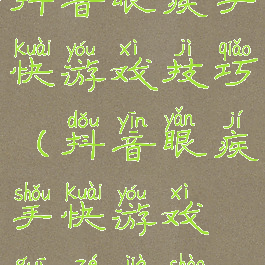 抖音眼疾手
kuài yóu xì jì qiǎo
快游戏技巧
dǒu yīn yǎn jí
(抖音眼疾
shǒu kuài yóu xì
手快游戏